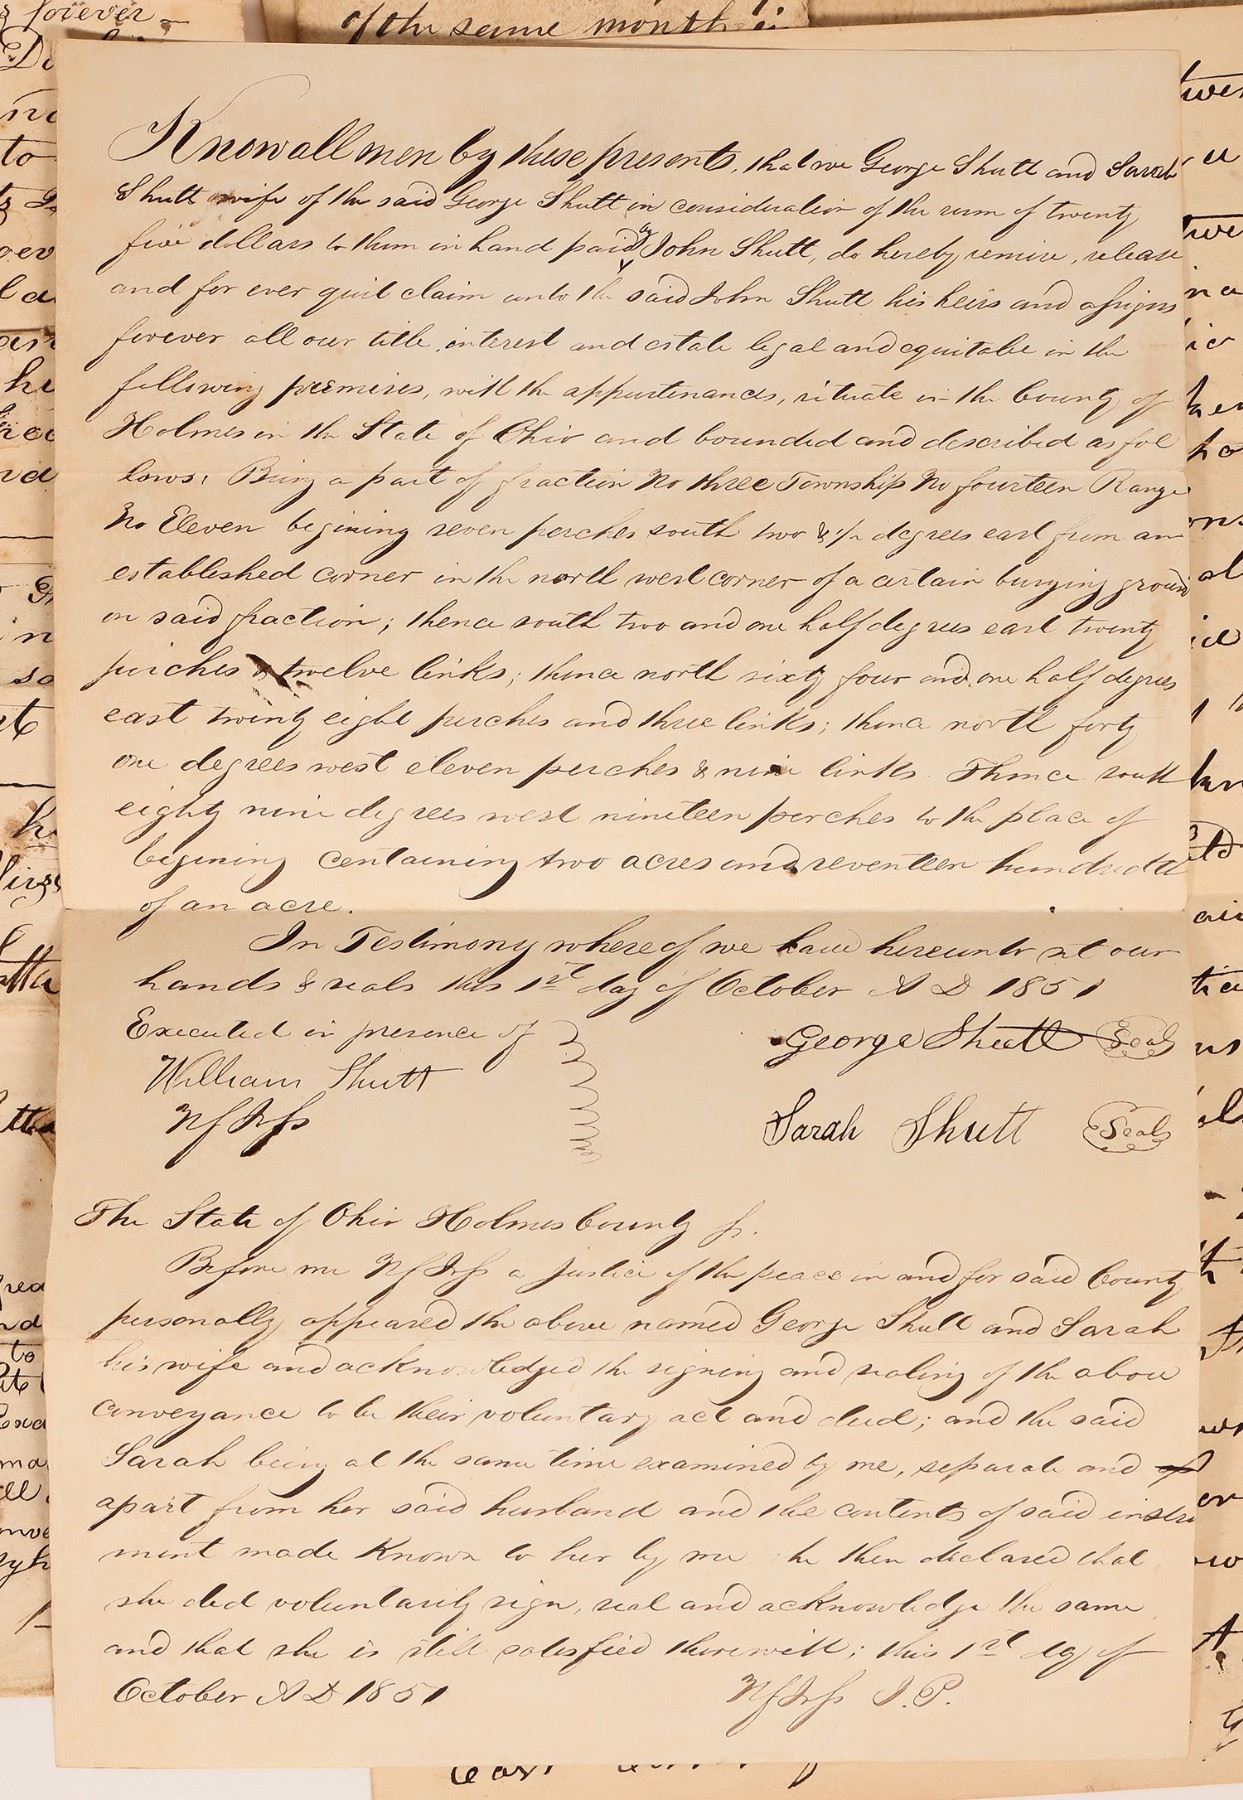 of the same month
Know all men by these presents, that we George Shutt and Sarah
Shutt wife of the said George Shutt in consideration of the sum of twenty
five dollars to them in hand paid by John Shutt, do hereby remise, release
and for ever quit claim unto the said John Shutt his heirs and assigns
forever all our title, interest and estate legal and equitable in the
following premises, with the appurtenances, situate in the County of
Holmes in the State of Ohio and bounded and described as fol
lows, Being a part of fraction No three Township No fourteen Range
No Eleven begining seven perches south two & 1/2 degrees east from an
established corner in the north west corner of a certain burying ground
on said fraction; thence south two and one half degrees east twenty
perches & twelve links; thence north sixty four and one half degrees
east twenty eight perches and three links; thence north forty
one degrees west eleven perches & nine links. Thence south
eighty nine degrees west nineteen perches to the place of
begining containing two acres and seventeen hundredth
of an acre.
In Testimony whereof we have hereunto set our
hands & seals this 1st day of October A D 1851
Executed in presence of
George Shutt Seal
William Shutt
Sarah Shutt Seal
The State of Ohio Holmes County ss.
Before me a Justice of the peace in and for said County
personally appeared the above named George Shutt and Sarah
his wife and acknowledged the signing and sealing of the above
conveyance to be their voluntary act and deed; and the said
Sarah being at the same time examined by me, separate and
apart from her said husband and the contents of said instru
ment made Known to her by me he then declared that
she did voluntarily sign, seal and acknowledge the same
and that she is still satisfied therewith; this 1st day of
October A D 1851
J.P.